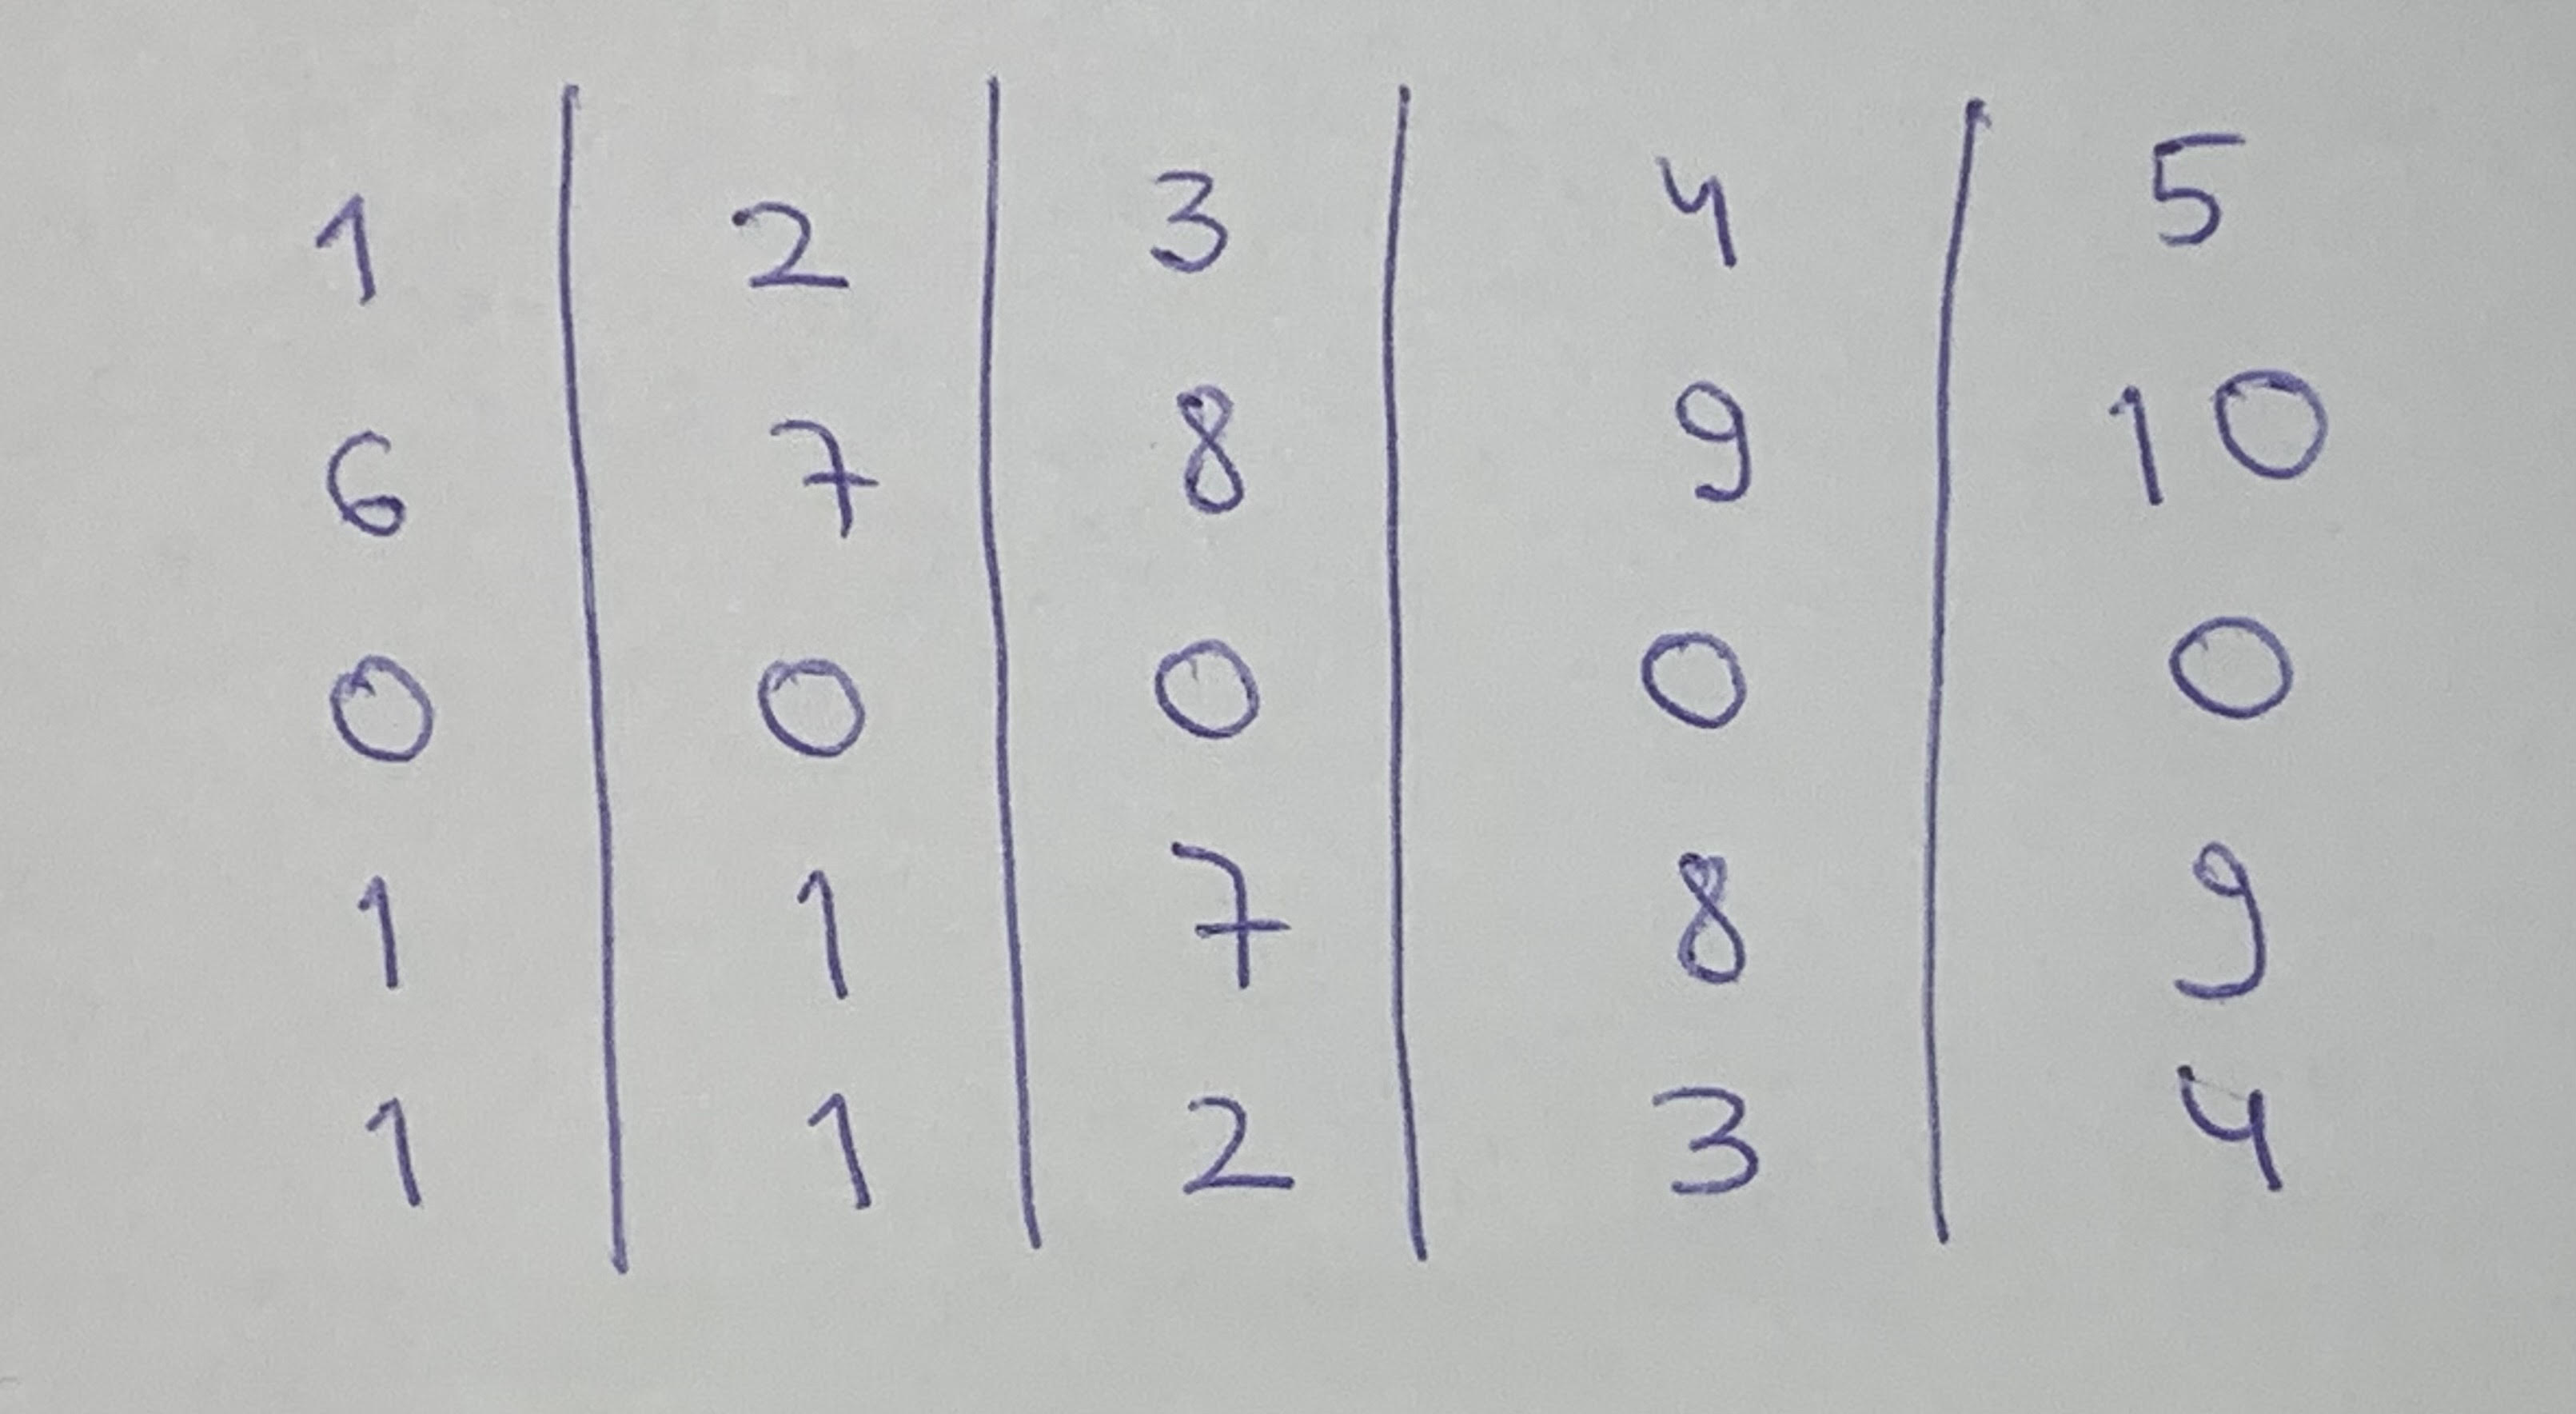 1 | 2 | 3 | 4 | 5
6 | 7 | 8 | 9 | 10
0 | 0 | 0 | 0 | 0
1 | 1 | 7 | 8 | 9
1 | 1 | 2 | 3 | 4